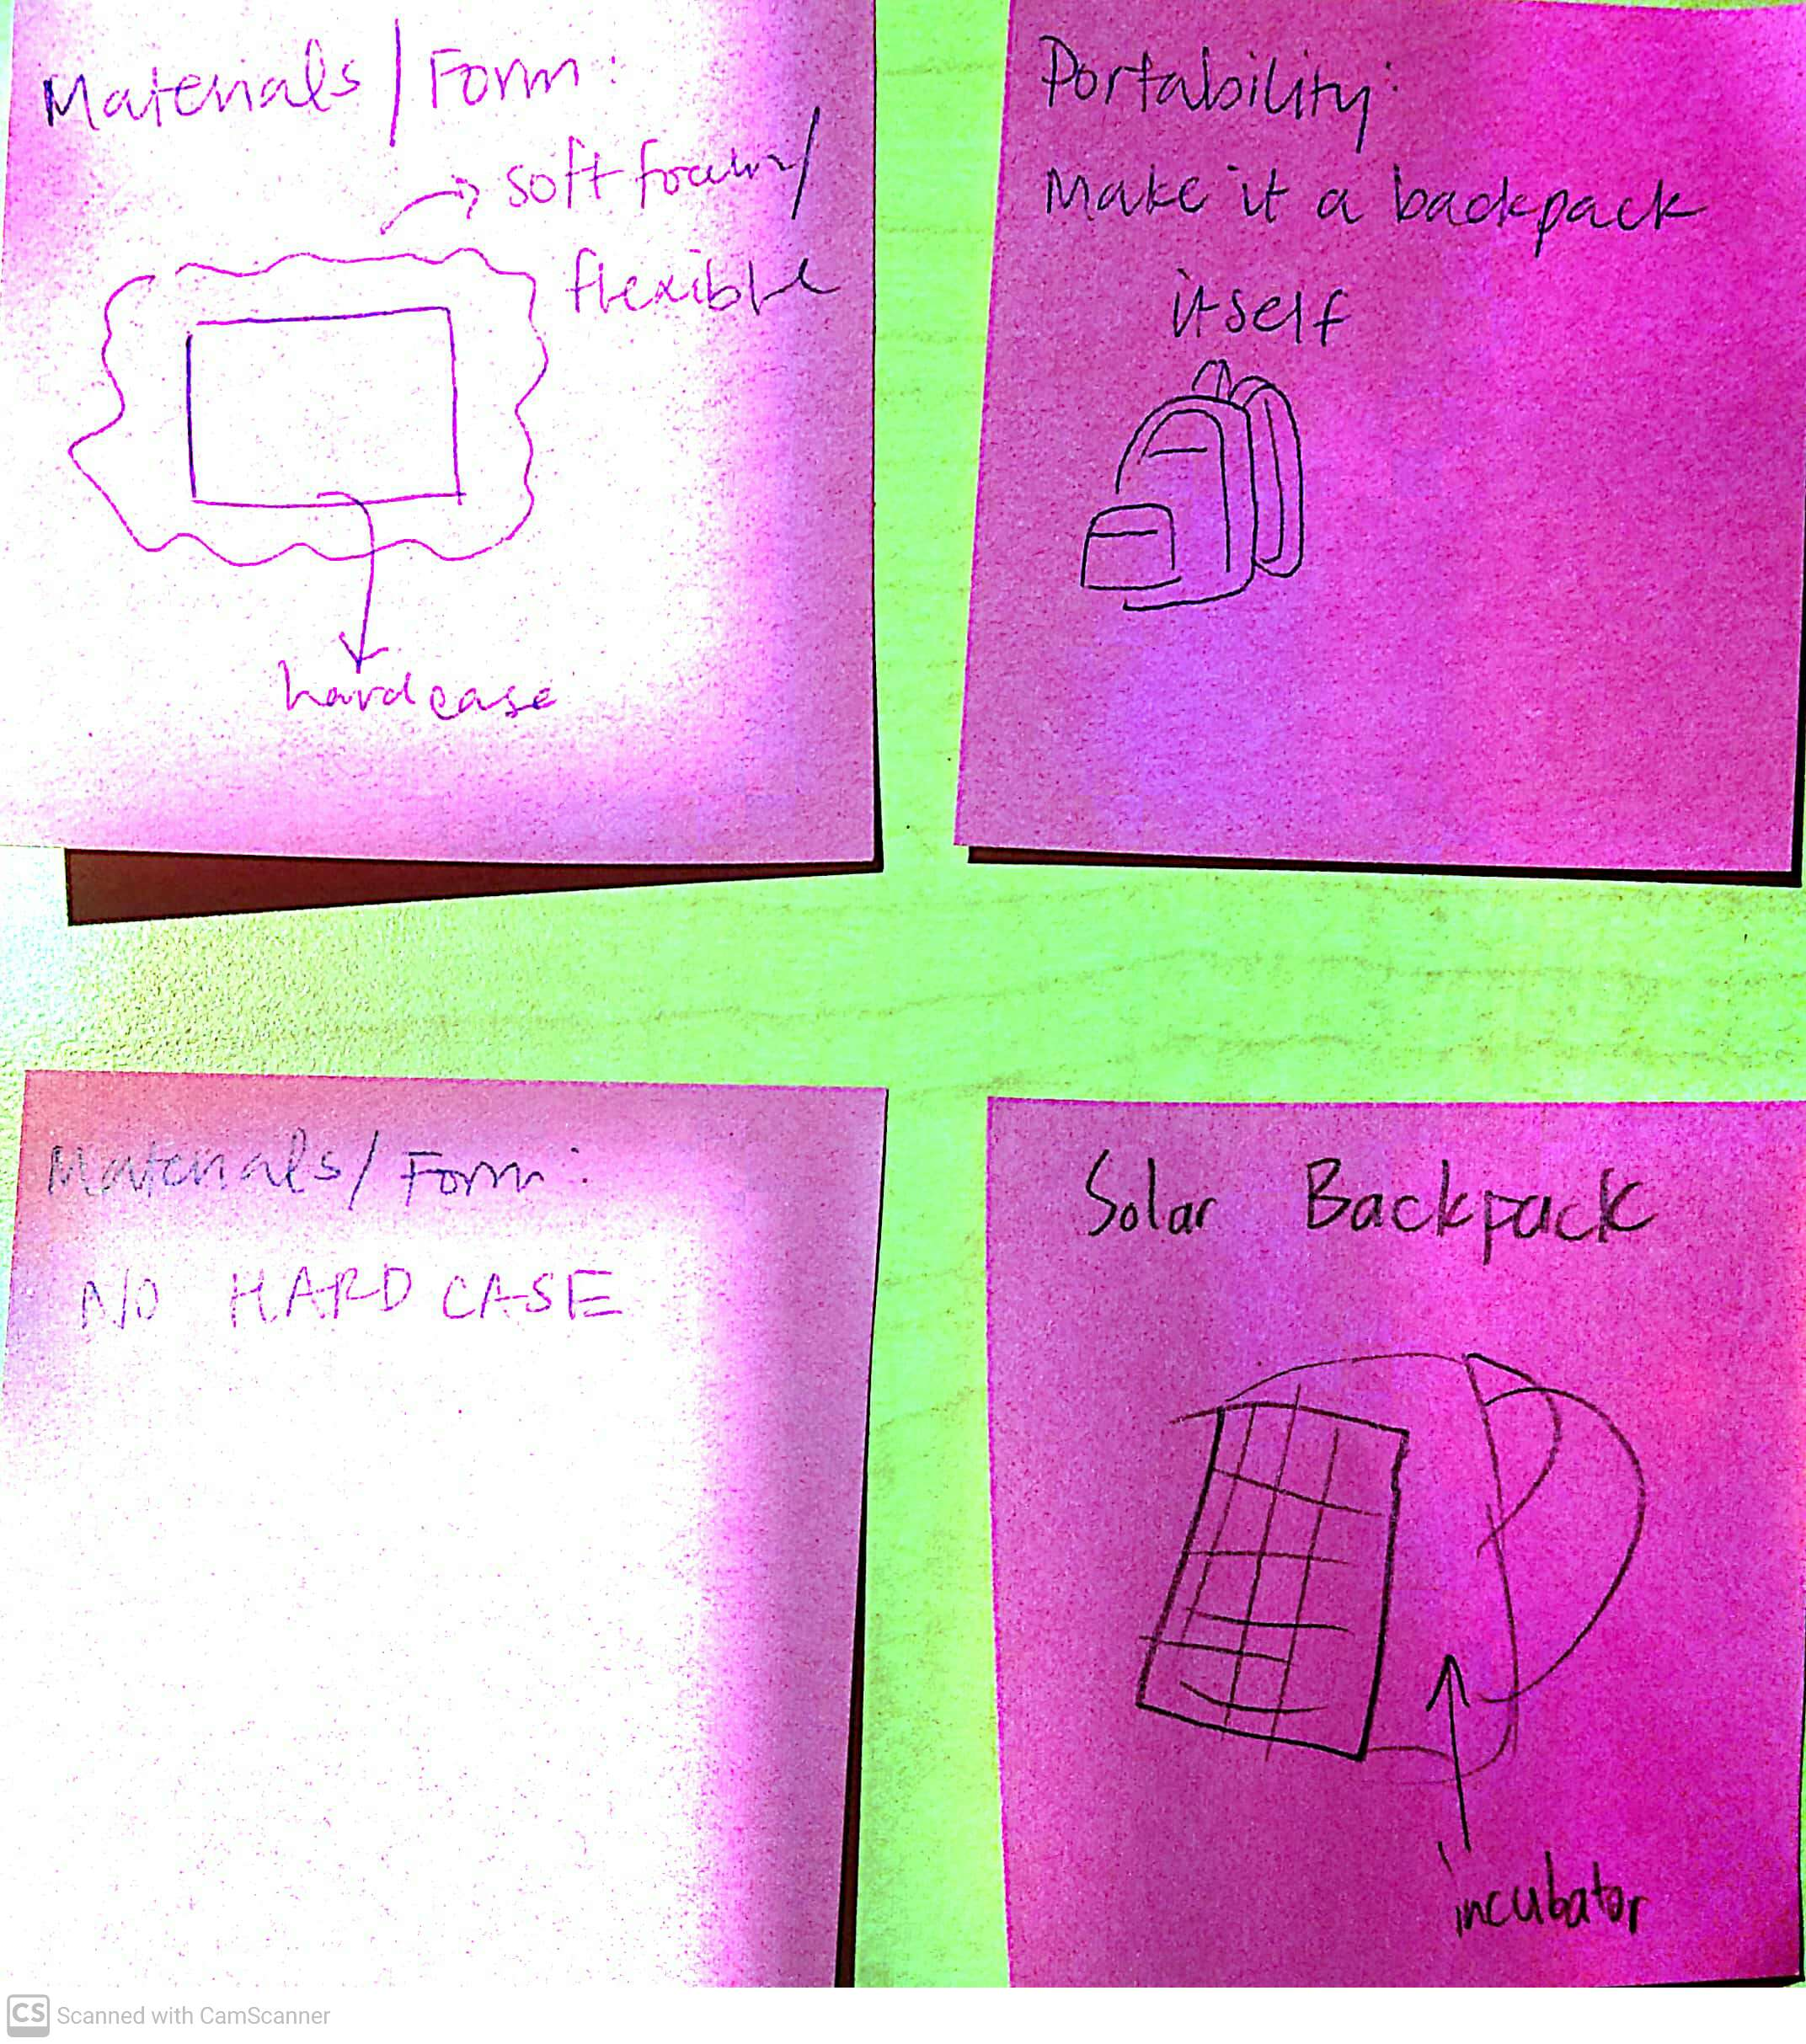 Materials / Form:
soft foam /
flexible
hard case
Portability:
Make it a backpack
itself
Materials / Form:
NO HARD CASE
Solar Backpack
incubator
CS Scanned with CamScanner